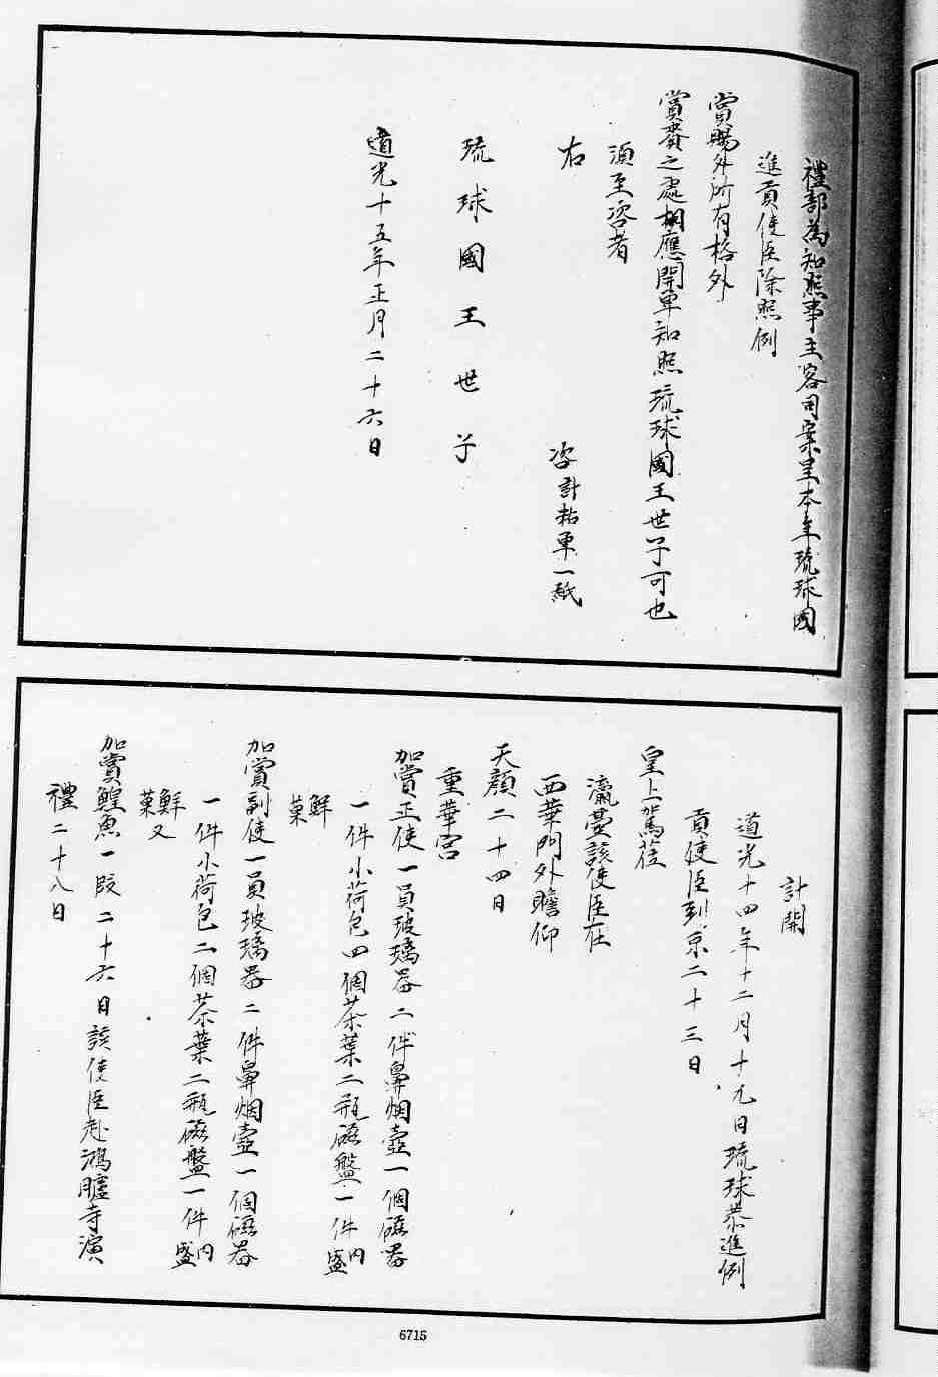 禮部為知照事主客司案呈本年琉球國
進貢使臣除照例
賞賜外所有格外
賞賚之處相應開單知照琉球國王世子可也
須至咨者
右　咨計粘單一紙
琉球國王世子
道光十五年正月二十六日
計開
道光十四年十二月十九日琉球恭進例
貢使臣到京二十三日
皇上駕莅
瀛臺該使臣在
西華門外瞻仰
天顏二十四日
重華宮
加賞正使一員玻璃器二件鼻烟壺一個磁器
一件小荷包四個茶葉二瓶磁盤一件內盛
鮮菓
加賞副使一員玻璃器二件鼻烟壺一個磁器
一件小荷包二個茶葉二瓶磁盤一件內盛
鮮菓又
加賞鰉魚一段二十六日該使臣赴鴻臚寺演
禮二十八日
6715